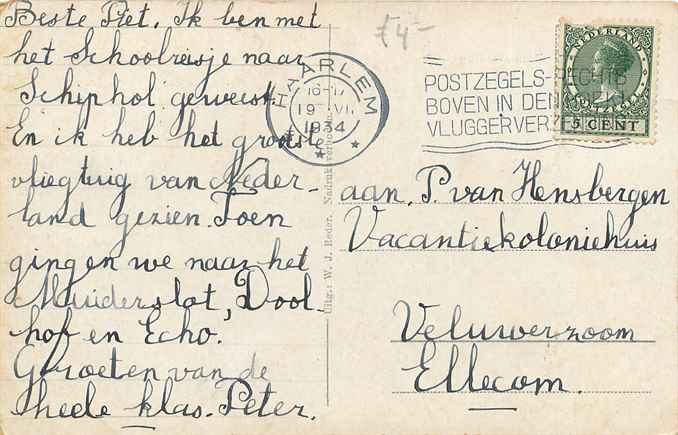 Beste Piet. Ik ben met
het Schoolreisje naar
Schiphol geweest.
En ik heb het grootste
vliegtuig van Neder-
land gezien. Toen
gingen we naar het
Muiderslot, Dool-
hof en Echo.
Groeten van de
heele klas. Peter.
£4-
HAARLEM
16-17
19 VII
1934
POSTZEGELS RECHTS
BOVEN IN DEN
VLUGGER VER
NEDERLAND
5 CENT
Uitg.: W. J. Reder. Nadruk verboden
aan. P. van Hensbergen
Vacantiekoloniehuis
Veluwerzoom
Ellecom.